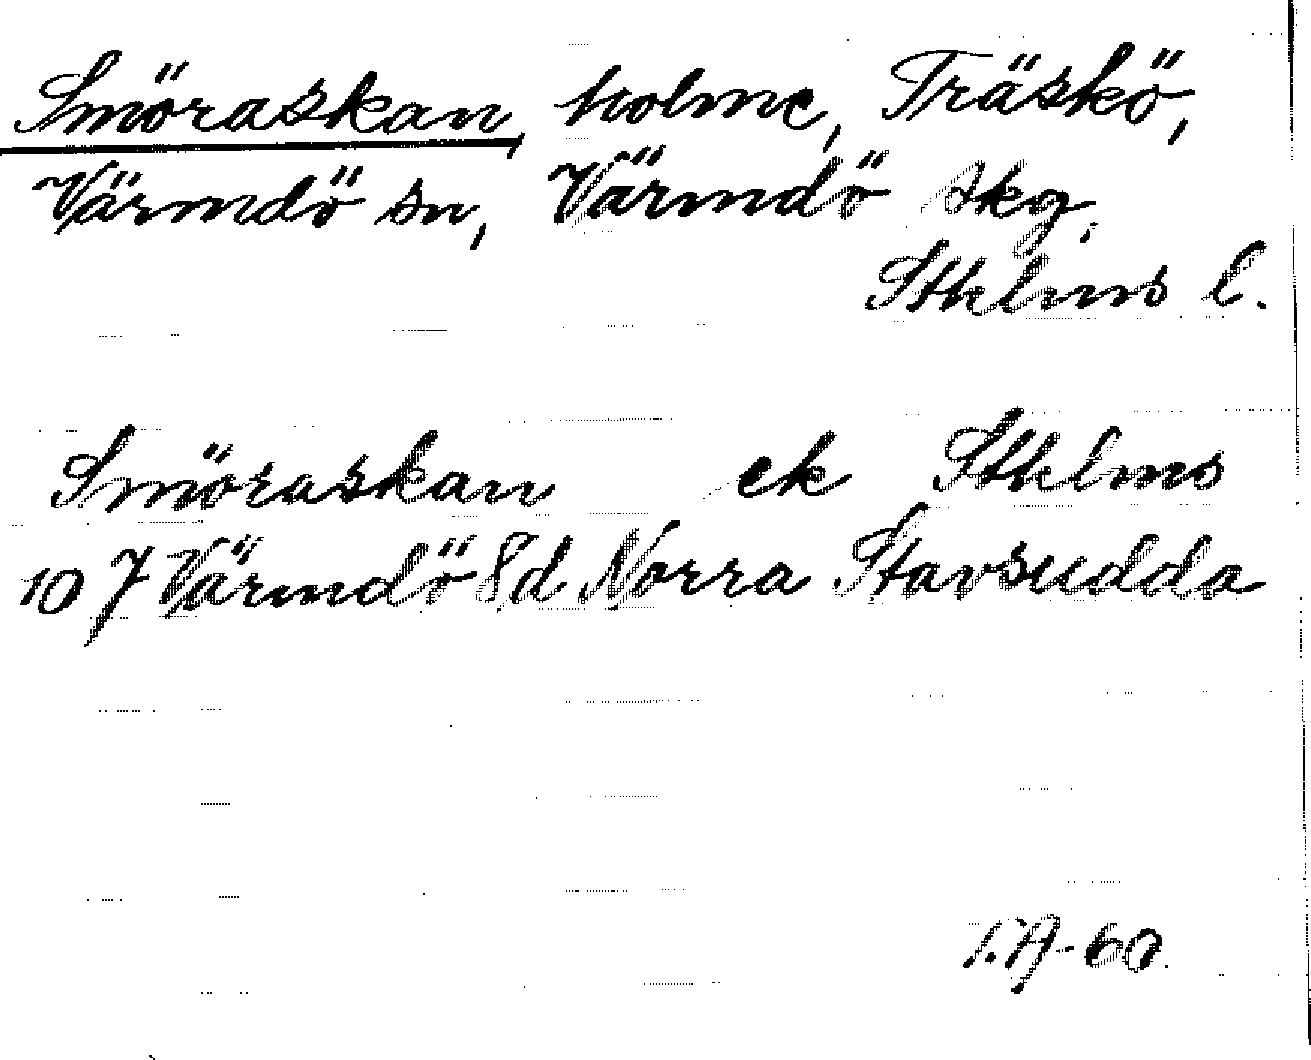 Smöraskan, holme, Träskö,
Värmdö sn, Värmdö skg,
Sthlms l.
Smöraskan ek Sthlms
10 7 Värmdö 8d Norra Stavsudda
T.A-60